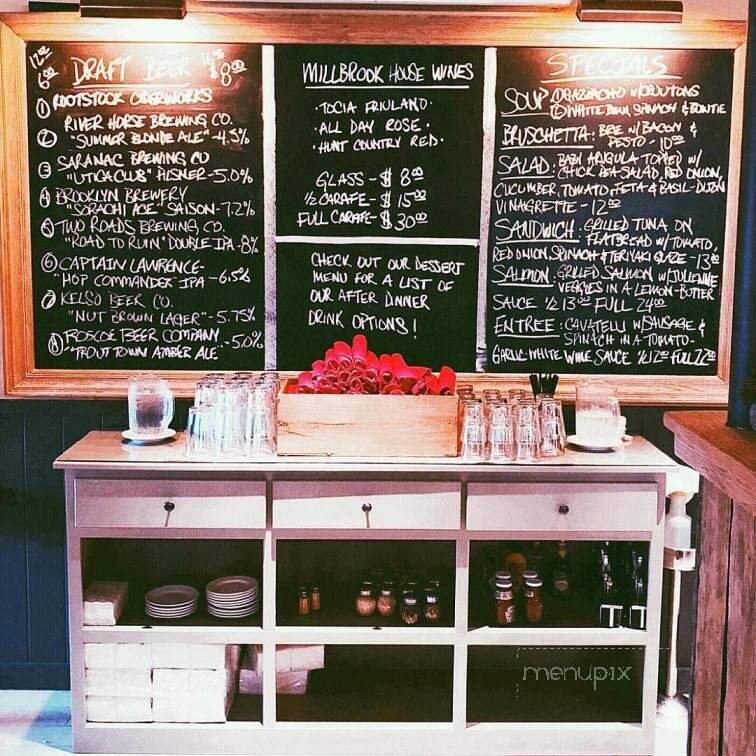 12oz 16oz
6.00 DRAFT BEER $8.00
① ROOTSTOCK CIDERWORKS
RIVER HORSE BREWING CO.
② "SUMMER BLONDE ALE" - 4.5%
③ SARANAC BREWING CO
"UTICA CLUB" PILSNER - 5.0%
④ BROOKLYN BREWERY
"SORACHI ACE" SAISON - 7.2%
⑤ TWO ROADS BREWING CO.
"ROAD TO RUIN" DOUBLE IPA - 8%
⑥ CAPTAIN LAWRENCE -
"HOP COMMANDER" IPA - 6.5%
⑦ KELSO BEER CO.
"NUT BROWN LAGER" - 5.75%
⑧ ROSCOE BEER COMPANY - 5.0%
"TROUT TOWN AMBER ALE"
MILLBROOK HOUSE WINES
· TOCIA FRIULANO ·
· ALL DAY ROSE ·
· HUNT COUNTRY RED ·
GLASS - $ 8.00
1/2 CARAFE - $ 15.00
FULL CARAFE - $ 30.00
CHECK OUT OUR DESSERT
MENU FOR A LIST OF
OUR AFTER DINNER
DRINK OPTIONS!
SPECIALS
SOUP ① GAZPACHO W/CROUTONS
② WHITE BEAN, SPINACH &
BRUSCHETTA: BRIE W/ BACON &
PESTO - 10.00
SALAD: BABY ARUGULA TOPPED W/
CHICK PEA SALAD, RED ONION,
CUCUMBER, TOMATO, FETA & BASIL-DIJON
VINAIGRETTE - 12.00
SANDWICH: GRILLED TUNA ON
FLATBREAD W/ TOMATO,
RED ONION, SPINACH & TERIYAKI GLAZE - 13.00
SALMON: GRILLED SALMON W/ JULIENNE
VEGGIES IN A LEMON-BUTTER
SAUCE 1/2 13.00 FULL 24.00
ENTREE: CAVATELLI W/ SAUSAGE &
SPINACH IN A TOMATO -
GARLIC WHITE WINE SAUCE 1/2 12.00 FULL 22.00
menupix